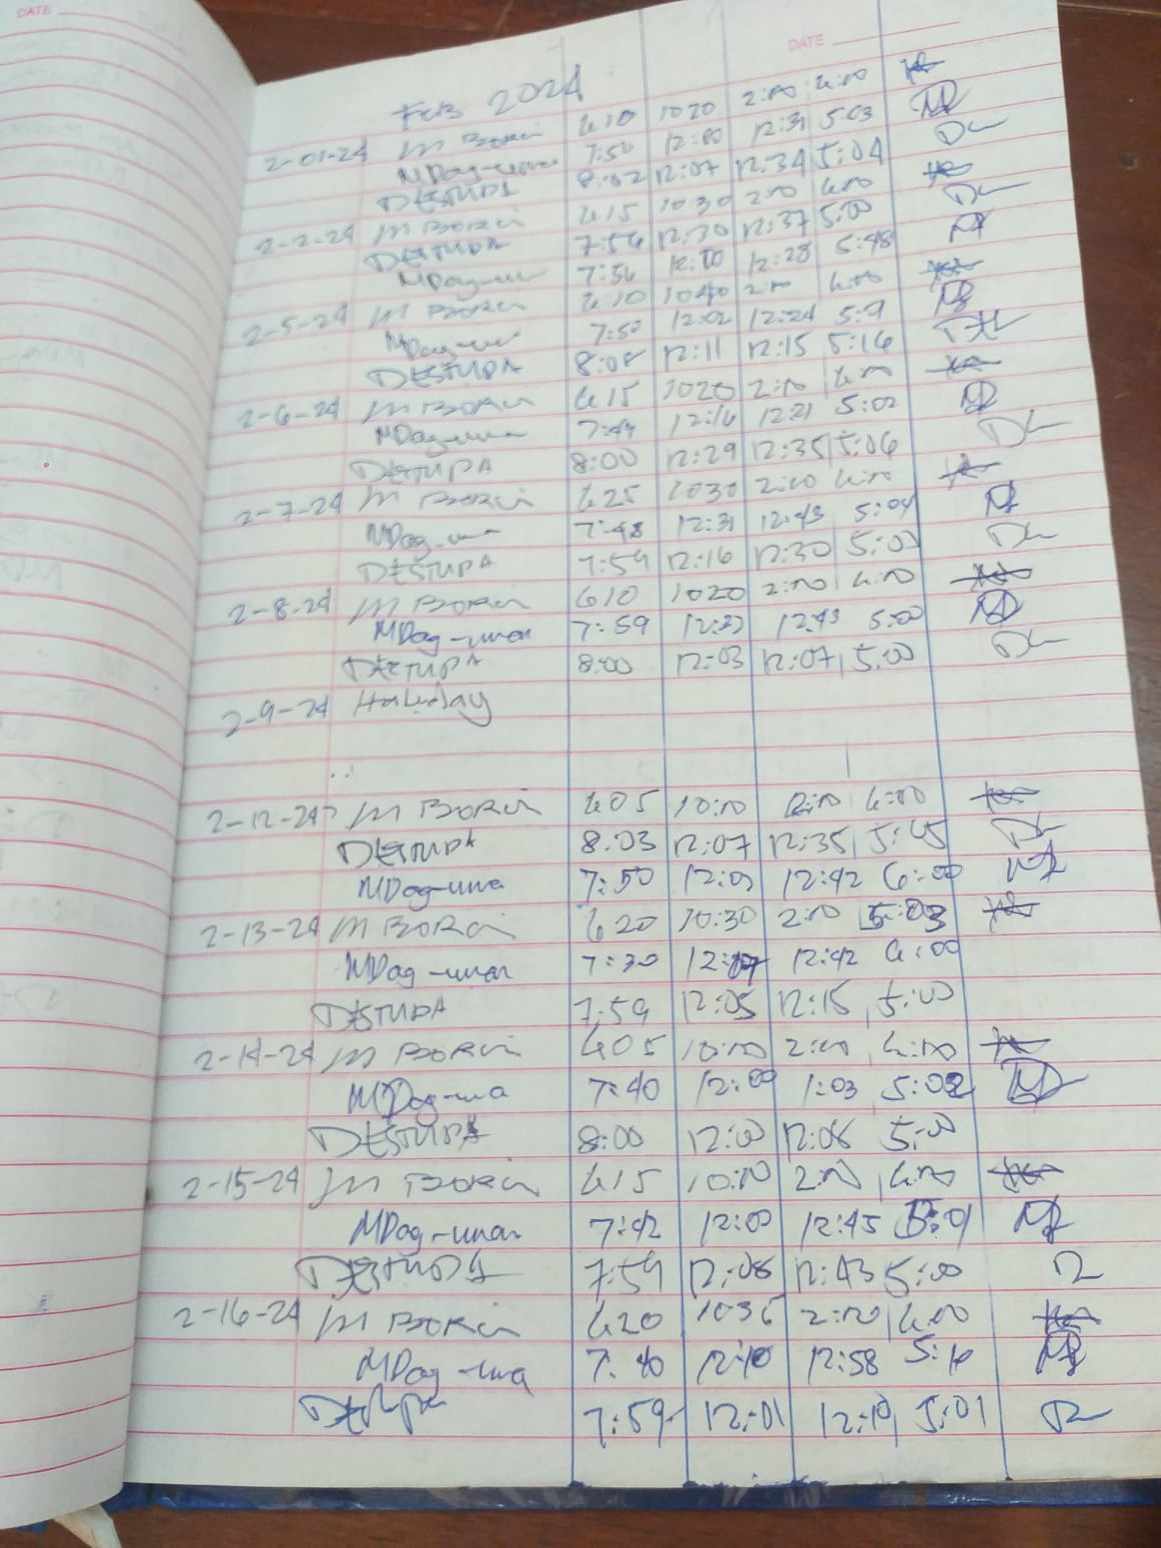 DATE
DATE
Feb 2024
2-01-24 M Borci 610 1020 2:00 6:00
MDag-uman 7:50 12:00 12:31 5:03
DESTUPA 8:02 12:07 12:34 5:04
2-2-24 M Borci 615 1030 2:00 6:00
DESTUPA 7:56 12:30 12:37 5:00
MDag-un 7:56 12:00 12:28 5:48
2-5-24 M Borci 610 1040 2:00 6:00
MDag-un 7:50 12:02 12:24
DESTUPA 8:08 12:11 12:15 5:16
2-6-24 M Borci 615 1020 2:00 6:00
MDag-una 12:16 12:21 5:02
DESTUPA 8:00 12:29 12:35 5:06
2-7-24 M Borci 625 1030 2:00 6:00
MDag-una 7:48 12:31 12:43 5:04
DESTUPA 7:59 12:16 12:30 5:00
2-8-24 M Borci 610 1020 2:00 6:00
MDag-uman 7:59 12:43 5:00
DESTUPA 8:00 12:03 12:07 5:00
2-9-24 Holiday
2-12-24 M Borci 605 10:00 2:00 6:00
DESTUPA 8:03 12:07 12:35 5:45
MDag-una 7:50 12:42 6:00
2-13-24 M Borci 620 10:30 2:00 5:03
MDag-unan 7:30 12:42 6:00
DESTUPA 7:59 12:05 12:15 5:00
2-14-24 M Borci 605 10:00 2:00 6:00
MDag-una 7:40 12:00 1:03 5:02
DESTUPA 8:00 12:00 12:08 5:00
2-15-24 M Borci 615 10:00 2:00 6:00
MDag-unan 7:42 12:00 12:45 5:01
DESTUPA 7:59 12:08 12:43 5:00
2-16-24 M Borci 620 1036 2:00 6:00
MDag-una 7:40 12:10 12:58 5:16
DESTUPA 7:59 12:01 12:10 5:01